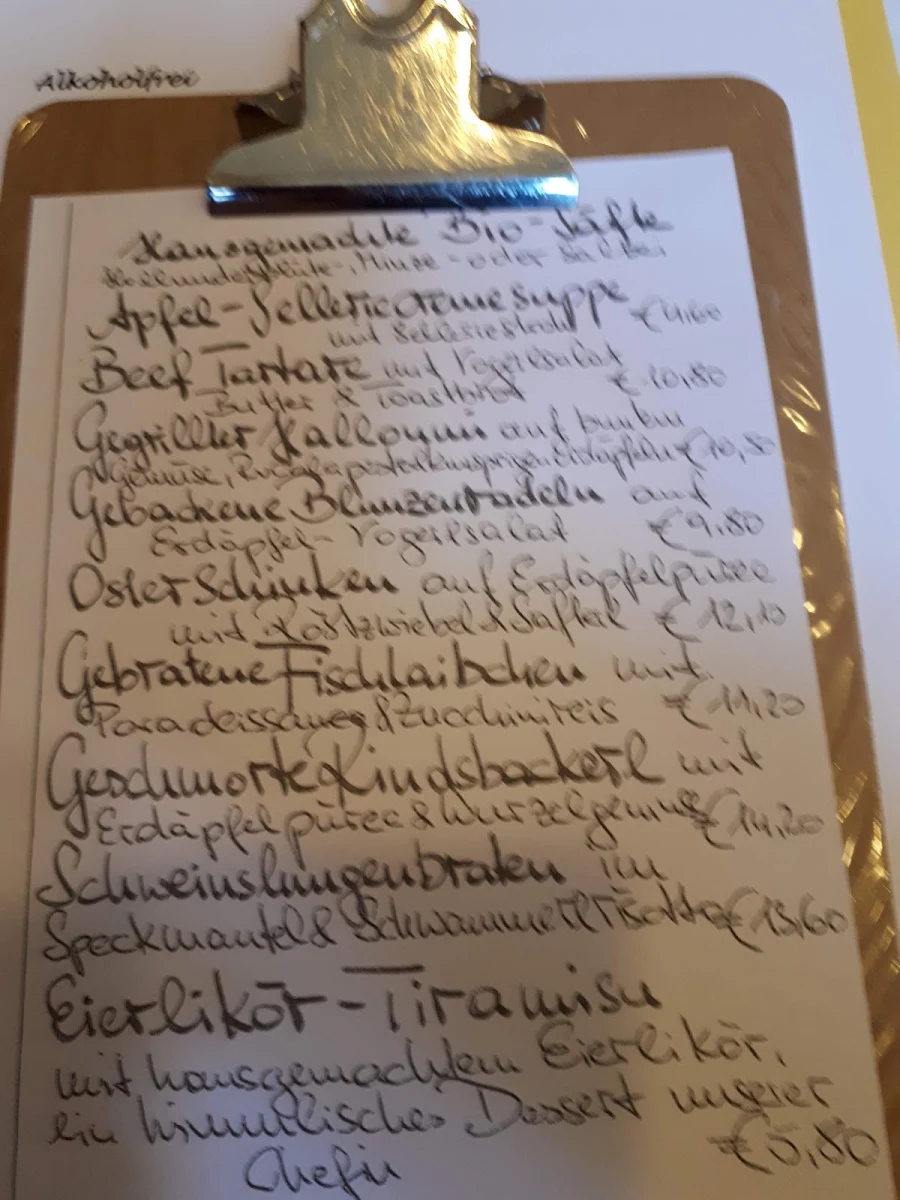 Alkoholfrei
Hausgemachte Bio-Säfte
Hollunderblüte-, Minze- oder Salbei
Apfel-Selleriecremesuppe
mit Selleriestroh € 4,60
Beef Tartare auf Vogerlsalat
Butter & Toastbrot € 10,80
Gegrillter Halloumi auf buntem
Gemüse, Rucolapesto & knusprigen Erdäpfeln € 10,50
Gebackene Blunzenradeln auf
Erdäpfel-Vogerlsalat € 9,80
Osterschinken auf Erdäpfelpüree
mit Röstzwiebel & Saftal € 12,10
Gebratene Fischlaibchen mit
Paradeissauce & Zucchinireis € 11,20
Geschmorte Rindsbackerl mit
Erdäpfelpüree & Wurzelgemüse € 14,20
Schweinslungenbraten im
Speckmantel & Schwammerlrisotto € 13,60
Eierlikör-Tiramisu
mit hausgemachtem Eierlikör,
ein himmlisches Dessert unserer
Chefin € 5,80